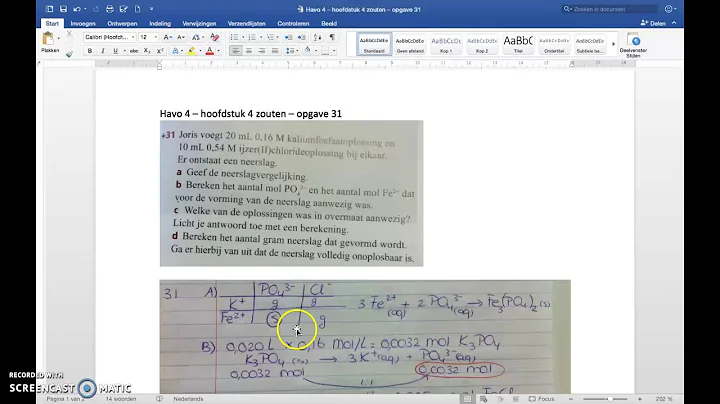 Havo 4 – hoofdstuk 4 zouten – opgave 31
Zoeken in document
Start Invoegen Ontwerpen Indeling Verwijzingen Verzendlijsten Controleren Beeld
Delen
Plakken
Calibri (Hoofdt... 12
AaBbCcDdEe AaBbCcDdEe AaBbCcDc AaBbCcDdEe AaBbC AaBbCcDdEe AaBbCcDdEe
Standaard Geen afstand Kop 1 Kop 2 Titel Ondertitel Subtiele be...
Deelvenster Stijlen
Havo 4 – hoofdstuk 4 zouten – opgave 31
+31 Joris voegt 20 mL 0,16 M kaliumfosfaatoplossing en
10 mL 0,54 M ijzer(II)chlorideoplossing bij elkaar.
Er ontstaat een neerslag.
a Geef de neerslagvergelijking.
b Bereken het aantal mol PO₄³⁻ en het aantal mol Fe²⁺ dat
voor de vorming van de neerslag aanwezig was.
c Welke van de oplossingen was in overmaat aanwezig?
Licht je antwoord toe met een berekening.
d Bereken het aantal gram neerslag dat gevormd wordt.
Ga er hierbij van uit dat de neerslag volledig onoplosbaar is.
31 A) PO₄³⁻ Cl⁻
K⁺ g g 3 Fe²⁺(aq) + 2 PO₄³⁻(aq) → Fe₃(PO₄)₂(s)
Fe²⁺ S g
B) 0,020 L × 0,16 mol/L = 0,0032 mol K₃PO₄
K₃PO₄(s) → 3 K⁺(aq) + PO₄³⁻(aq)
0,0032 mol 1:1 0,0032 mol
RECORDED WITH
SCREENCAST MATIC
Pagina 1 van 2 14 woorden Nederlands Focus 202 %